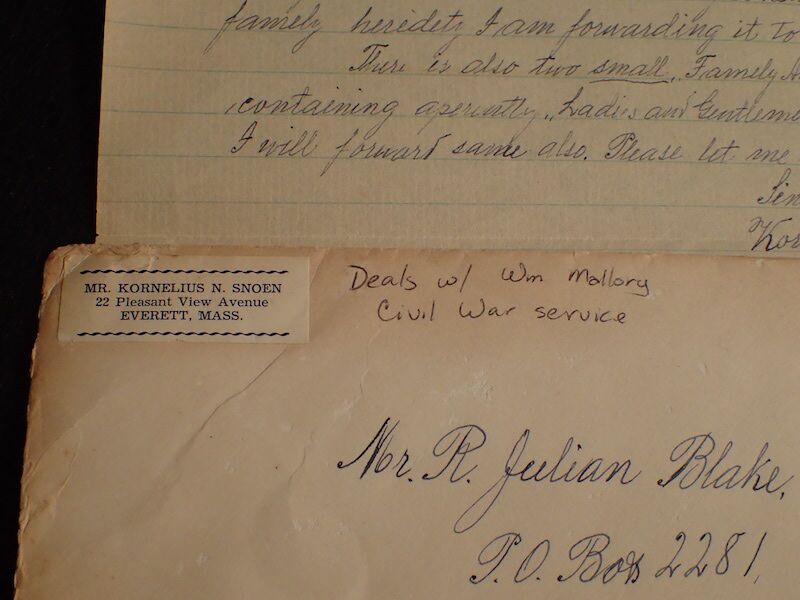 famely heredety I am forwarding it to
There is also two small, Famely
containing aperently, Ladies and Gentleme
I will forward same also. Please let me
Sin
Kor
MR. KORNELIUS N. SNOEN
22 Pleasant View Avenue
EVERETT, MASS.
Deals w/ Wm Mallory
Civil War service
Mr. R. Julian Blake,
P.O. Box 2281,